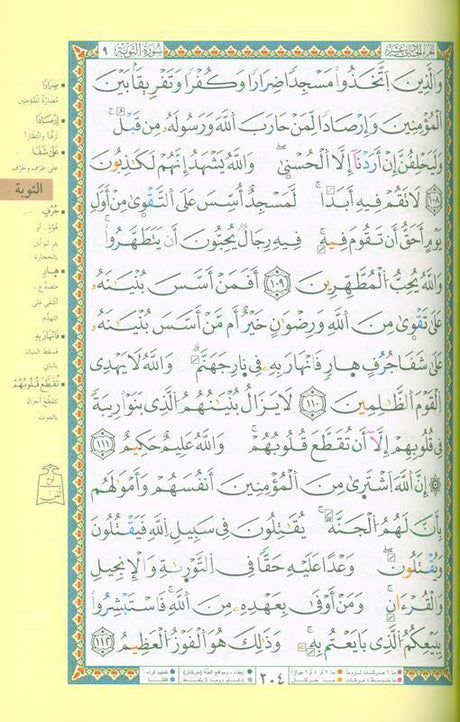 الجزء الحادي عشر
سُورَةُ التَّوْبَةِ ٩
وَالَّذِينَ اتَّخَذُوا مَسْجِدًا ضِرَارًا وَكُفْرًا وَتَفْرِيقًا بَيْنَ
الْمُؤْمِنِينَ وَإِرْصَادًا لِمَنْ حَارَبَ اللَّهَ وَرَسُولَهُ مِن قَبْلُ
وَلَيَحْلِفُنَّ إِنْ أَرَدْنَا إِلَّا الْحُسْنَى وَاللَّهُ يَشْهَدُ إِنَّهُمْ لَكَـٰذِبُونَ
١٠٨ لَا تَقُمْ فِيهِ أَبَدًا لَمَسْجِدٌ أُسِّسَ عَلَى التَّقْوَى مِنْ أَوَّلِ
يَوْمٍ أَحَقُّ أَن تَقُومَ فِيهِ فِيهِ رِجَالٌ يُحِبُّونَ أَن يَتَطَهَّرُوا
وَاللَّهُ يُحِبُّ الْمُطَّهِّرِينَ ١٠٩ أَفَمَنْ أَسَّسَ بُنْيَـٰنَهُ
عَلَى تَقْوَى مِنَ اللَّهِ وَرِضْوَانٍ خَيْرٌ أَم مَّنْ أَسَّسَ بُنْيَـٰنَهُ
عَلَى شَفَا جُرُفٍ هَارٍ فَانْهَارَ بِهِ فِي نَارِ جَهَنَّمَ وَاللَّهُ لَا يَهْدِي
الْقَوْمَ الظَّـٰلِمِينَ ١١٠ لَا يَزَالُ بُنْيَـٰنُهُمُ الَّذِي بَنَوْا رِيبَةً
فِي قُلُوبِهِمْ إِلَّا أَن تُقَطَّعَ قُلُوبُهُمْ وَاللَّهُ عَلِيمٌ حَكِيمٌ ١١١
إِنَّ اللَّهَ اشْتَرَى مِنَ الْمُؤْمِنِينَ أَنفُسَهُمْ وَأَمْوَٰلَهُم
بِأَنَّ لَهُمُ الْجَنَّةَ يُقَـٰتِلُونَ فِي سَبِيلِ اللَّهِ فَيَقْتُلُونَ
وَيُقْتَلُونَ وَعْدًا عَلَيْهِ حَقًّا فِي التَّوْرَىٰةِ وَالْإِنجِيلِ
وَالْقُرْءَانِ وَمَنْ أَوْفَى بِعَهْدِهِ مِنَ اللَّهِ فَاسْتَبْشِرُوا
بِبَيْعِكُمُ الَّذِي بَايَعْتُم بِهِ وَذَٰلِكَ هُوَ الْفَوْزُ الْعَظِيمُ ١١٢
ضِرَارًا
مضارّة للمؤمنين
إِرْصَادًا
ترقّبا وانتظارا
عَلَى شَفَا
على طرف وحرف
التوبة
جُرُفٍ
هُوّة . أو
بئر لم تُبنَ
بالحجارة
هارٍ
متصدّع ،
أشفى على
التهدّم
فَانْهَارَ بِهِ
فسقط البنيان
بالباني
تُقَطَّعَ قُلُوبُهُمْ
تتقطّع أجزاءً
بالموت
٢٠٤